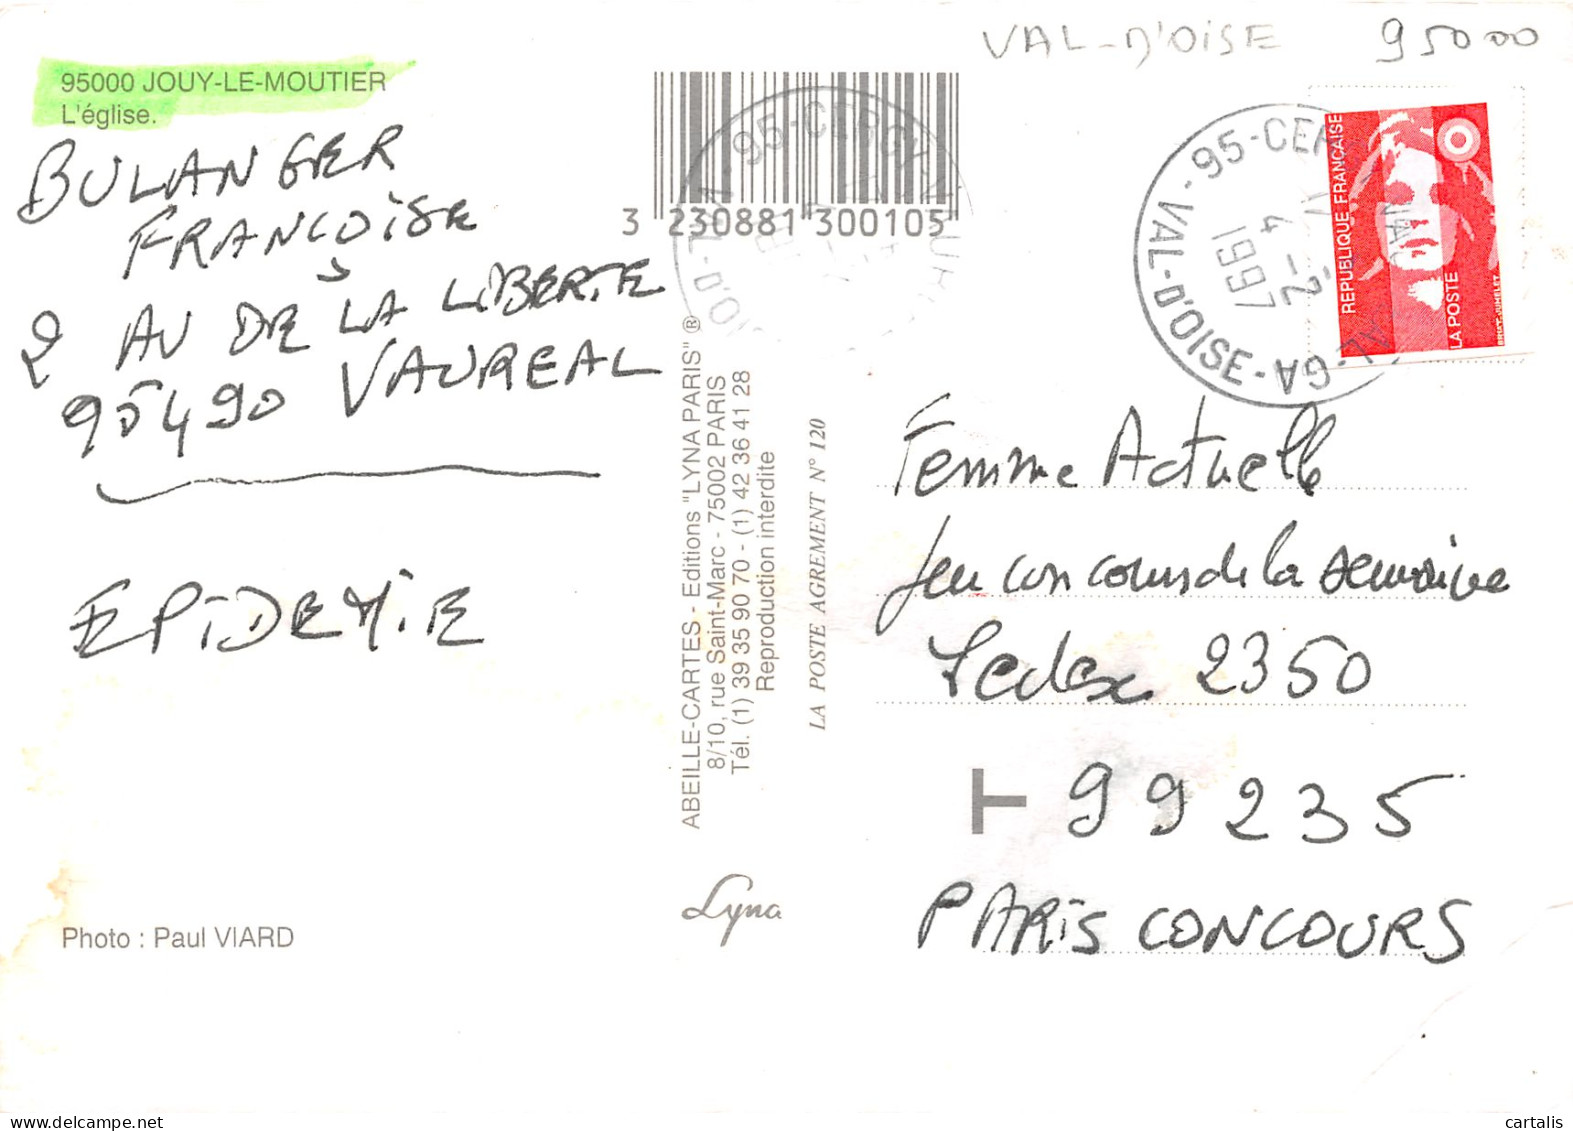 VAL-D'OISE 95000
95000 JOUY-LE-MOUTIER
L'église.
BULANGER
FRANÇOISE
2 AV DE LA LIBERTE
95490 VAUREAL
EPIDEMIE
Photo : Paul VIARD
3 230881 300105
ABEILLE-CARTES - Editions "LYNA PARIS" ®
8/10, rue Saint-Marc - 75002 PARIS
Tél. (1) 39 35 90 70 - (1) 42 36 41 28
Reproduction interdite
LA POSTE AGREMENT N° 120
Lyna
95-CERGY
95-CER
VAL-D'OISE-
1997
REPUBLIQUE FRANÇAISE
LA POSTE
Femme Actuelle
Jeu concours de la semaine
Cedex 2350
T 99235
PARIS CONCOURS
cartalis